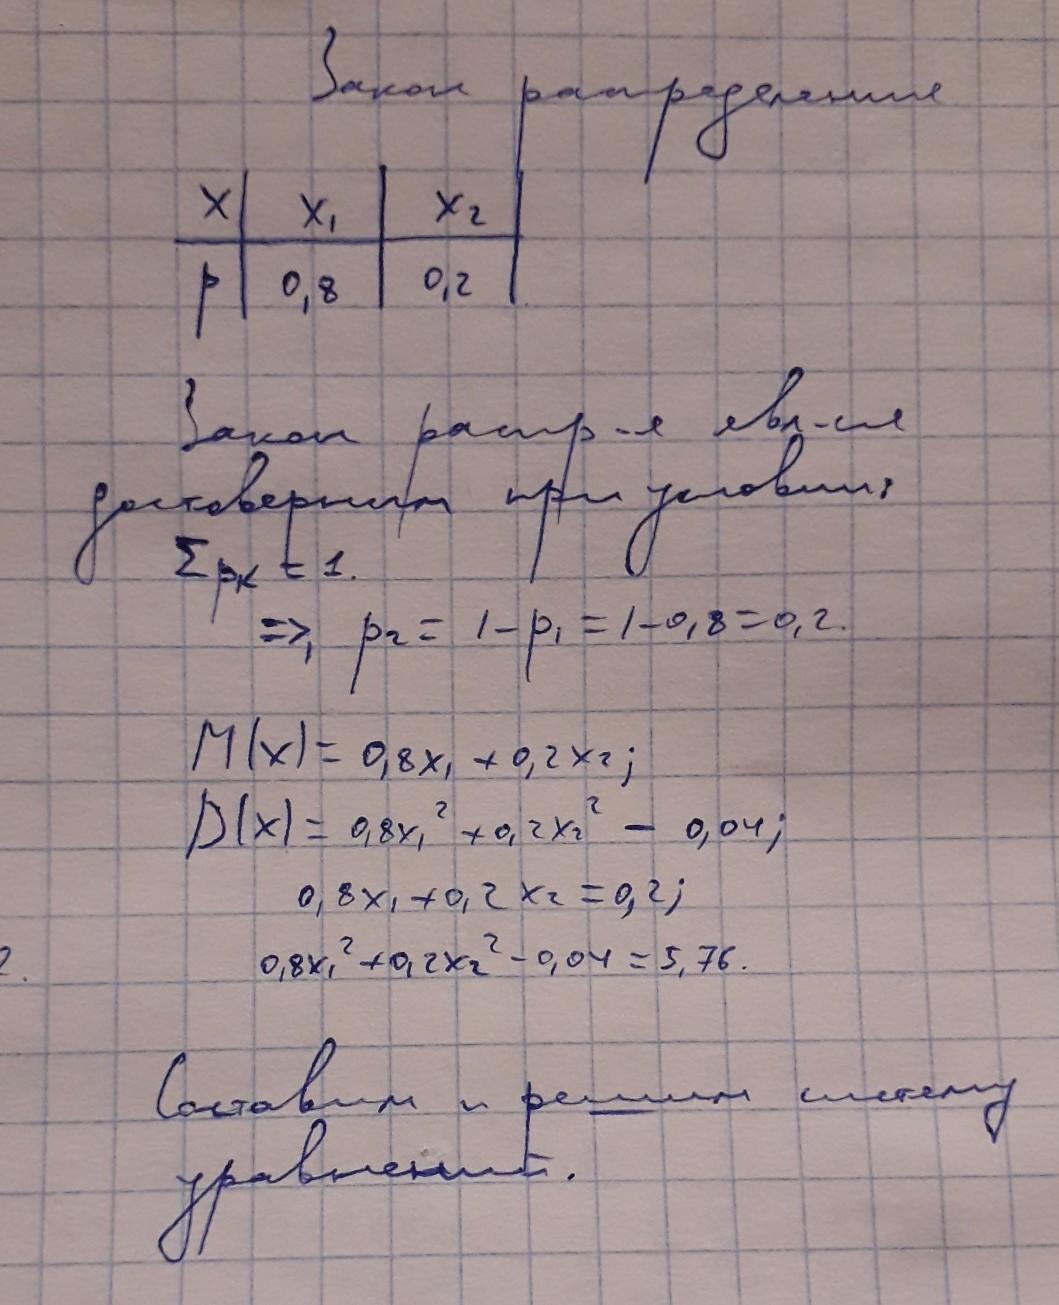 Закон распределения
X x₁ x₂
p 0,8 0,2
Закон распр-я явл-ся
достоверным при условии:
Σpₖ = 1.
=>, p₂ = 1-p₁ = 1-0,8=0,2.
M(x) = 0,8x₁ + 0,2x₂;
D(x) = 0,8x₁² + 0,2x₂² - 0,04;
0,8x₁ + 0,2x₂ = 0,2;
2. 0,8x₁² + 0,2x₂² - 0,04 = 5,76.
Составим и решим систему
уравнений.